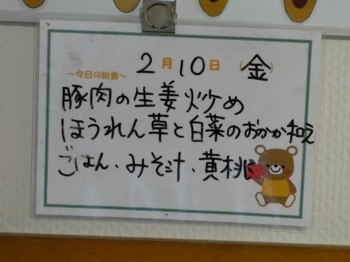 2月10日(金)
～今日の給食～
豚肉の生姜炒め
ほうれん草と白菜のおかか和え
ごはん・みそ汁・黄桃